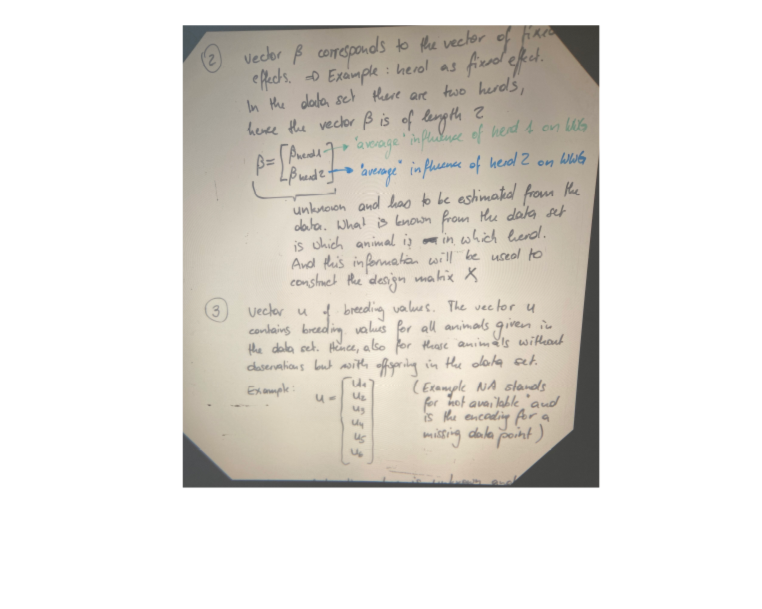 ② vector β corresponds to the vector of fixed
effects. ⇒ Example: herd as fixed effect.
In the data set there are two herds,
hence the vector β is of length 2
β = [β herd1 → "average" influence of herd 1 on WWG
β herd2] → "average" influence of herd 2 on WWG
unknown and has to be estimated from the
data. What is known from the data set
is which animal is in which herd.
And this information will be used to
construct the design matrix X
③ Vector u of breeding values. The vector u
contains breeding values for all animals given in
the data set. Hence, also for those animals without
observations but with offspring in the data set.
Example: u = [u1 u2 u3 u4 u5 u6]
(Example NA stands
for "not available" and
is the encoding for a
missing data point)
is unknown and